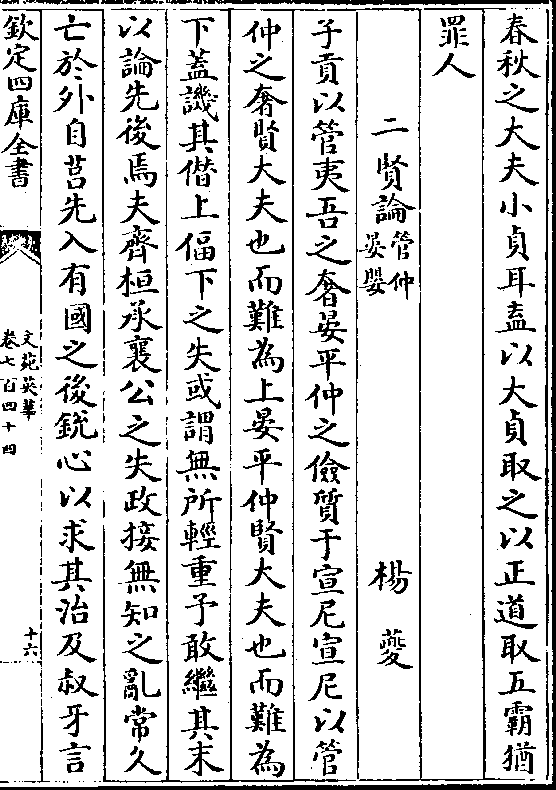 春秋之大夫小貞耳盍以大貞取之以正道取五霸猶
罪人
二賢論管仲晏嬰 楊夔
子貢以管夷吾之奢晏平仲之儉質于宣尼宣尼以管
仲之奢賢大夫也而難為上晏平仲賢大夫也而難為
下蓋譏其僭上偪下之失或謂無所輕重予敢繼其末
以論先後焉夫齊桓承襄公之失政接無知之亂常久
亡於外自莒先入有國之後銳心以求其治及叔牙言
欽定四庫全書
文苑英華
卷七百四十四
十六